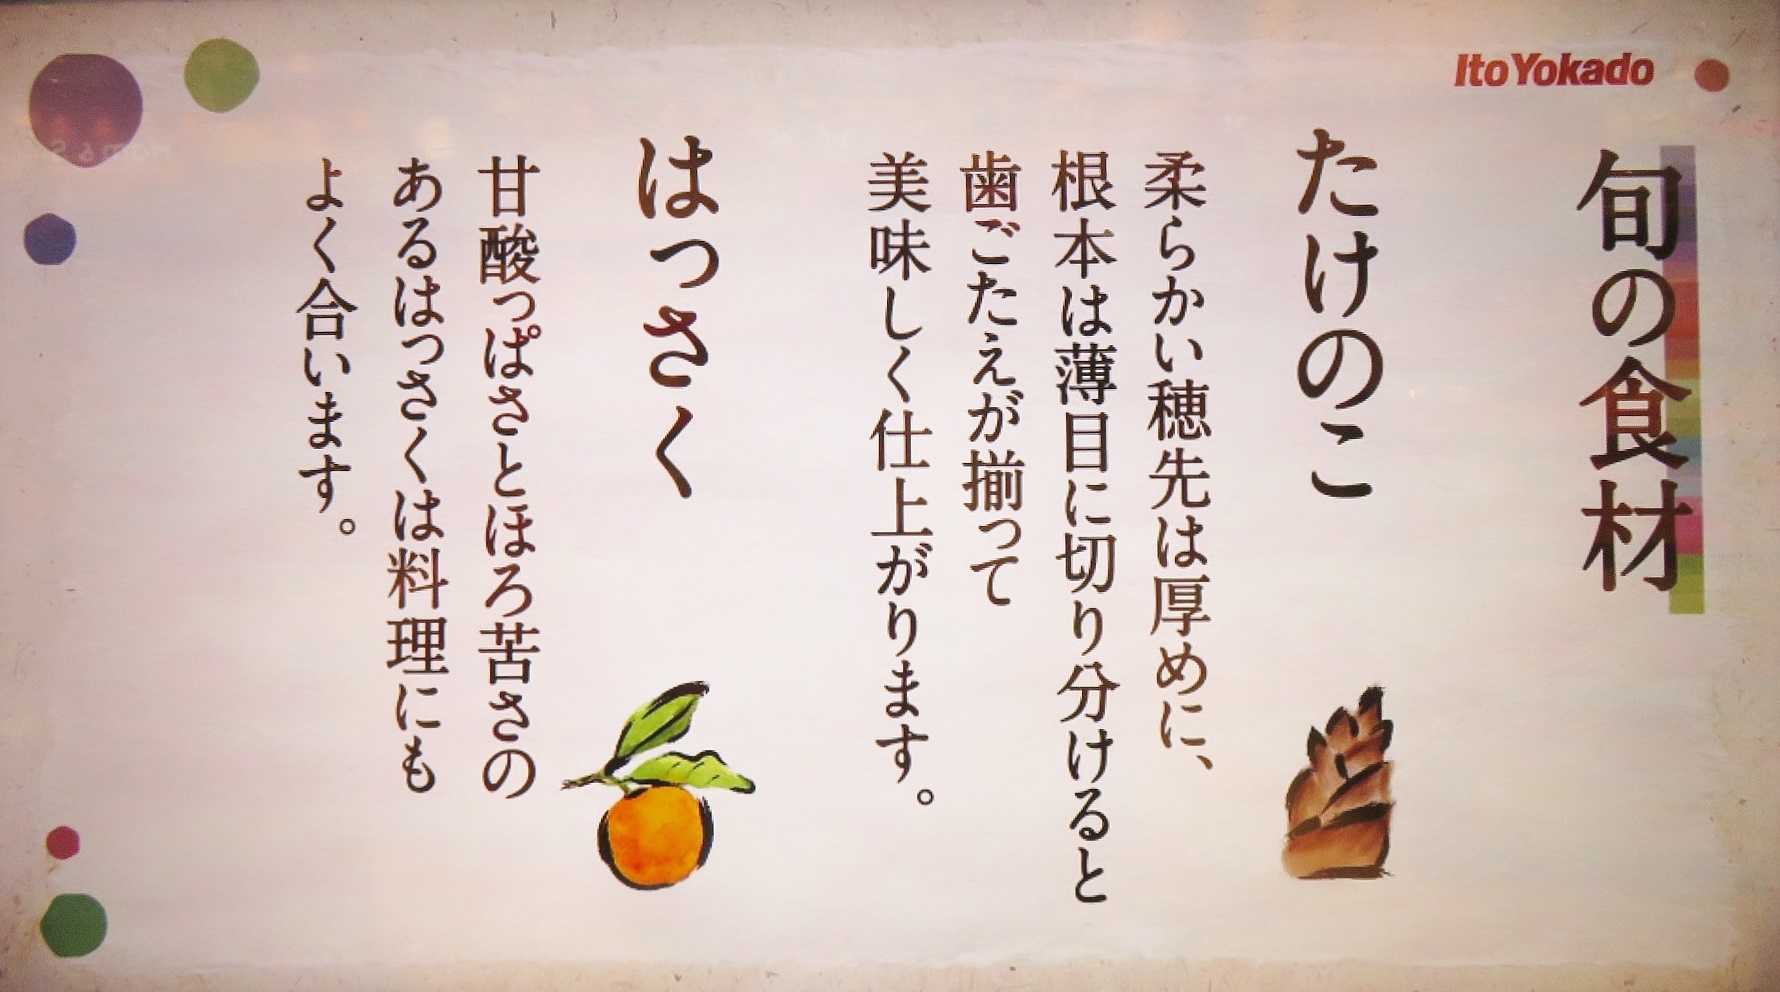 Ito Yokado
旬の食材
たけのこ
柔らかい穂先は厚めに、
根本は薄目に切り分けると
歯ごたえが揃って
美味しく仕上がります。
はっさく
甘酸っぱさとほろ苦さの
あるはっさくは料理にも
よく合います。